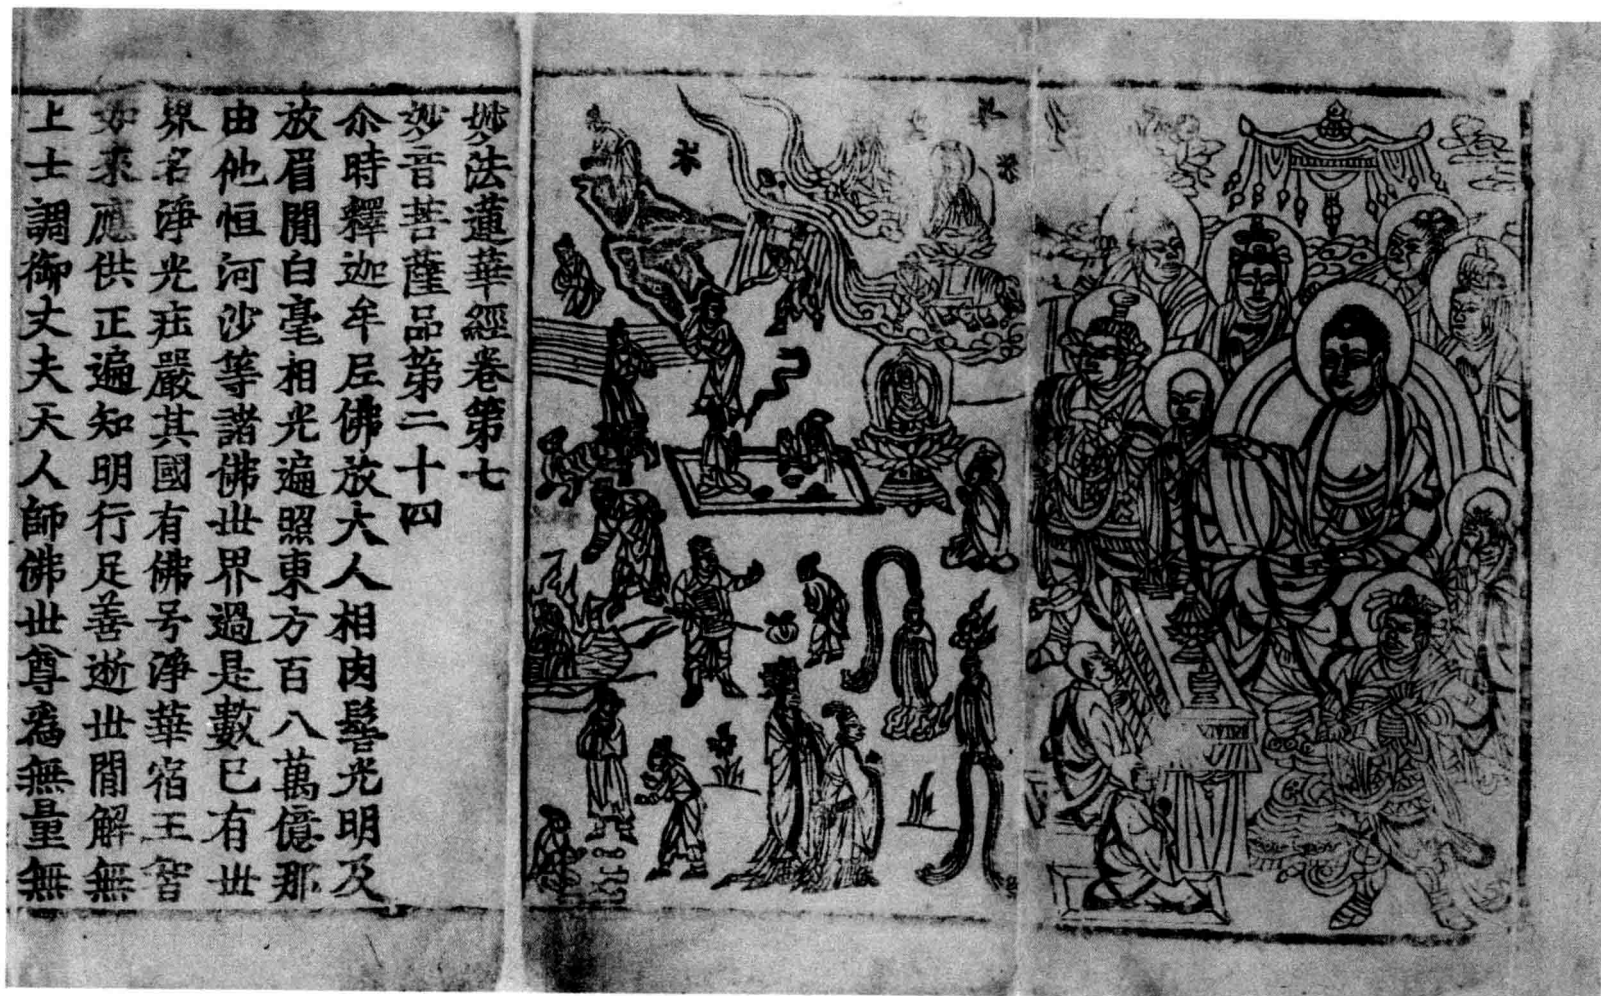 妙法蓮華經卷第七
妙音菩薩品第二十四
尒時釋迦牟尼佛放大人相肉髻光明及
放眉閒白毫相光遍照東方百八萬億那
由他恒河沙等諸佛世界過是數已有世
界名淨光㽵嚴其國有佛号淨華宿王智
如來應供正遍知明行足善逝世閒解無
上士調御丈夫天人師佛世尊為無量無